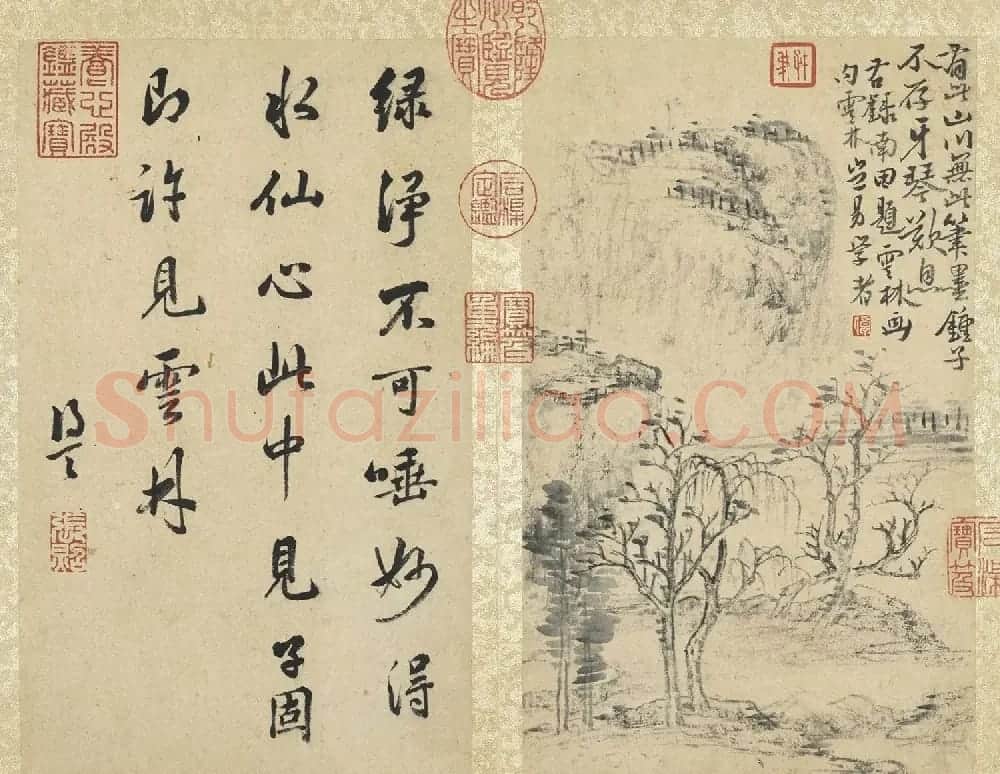 有此山川無此筆墨鍾子
不存牙琴歎息
右録南田題雲林画
句雲林豈易学者
石渠
寶笈
乾隆
御覽
之寶
石渠
定鑑
寶笈
重編
緑淨不可唾妙得
水仙心此中見子固
即許見雲林
得天
張照
養心殿
鑑藏寶
Shufaziliao.COM